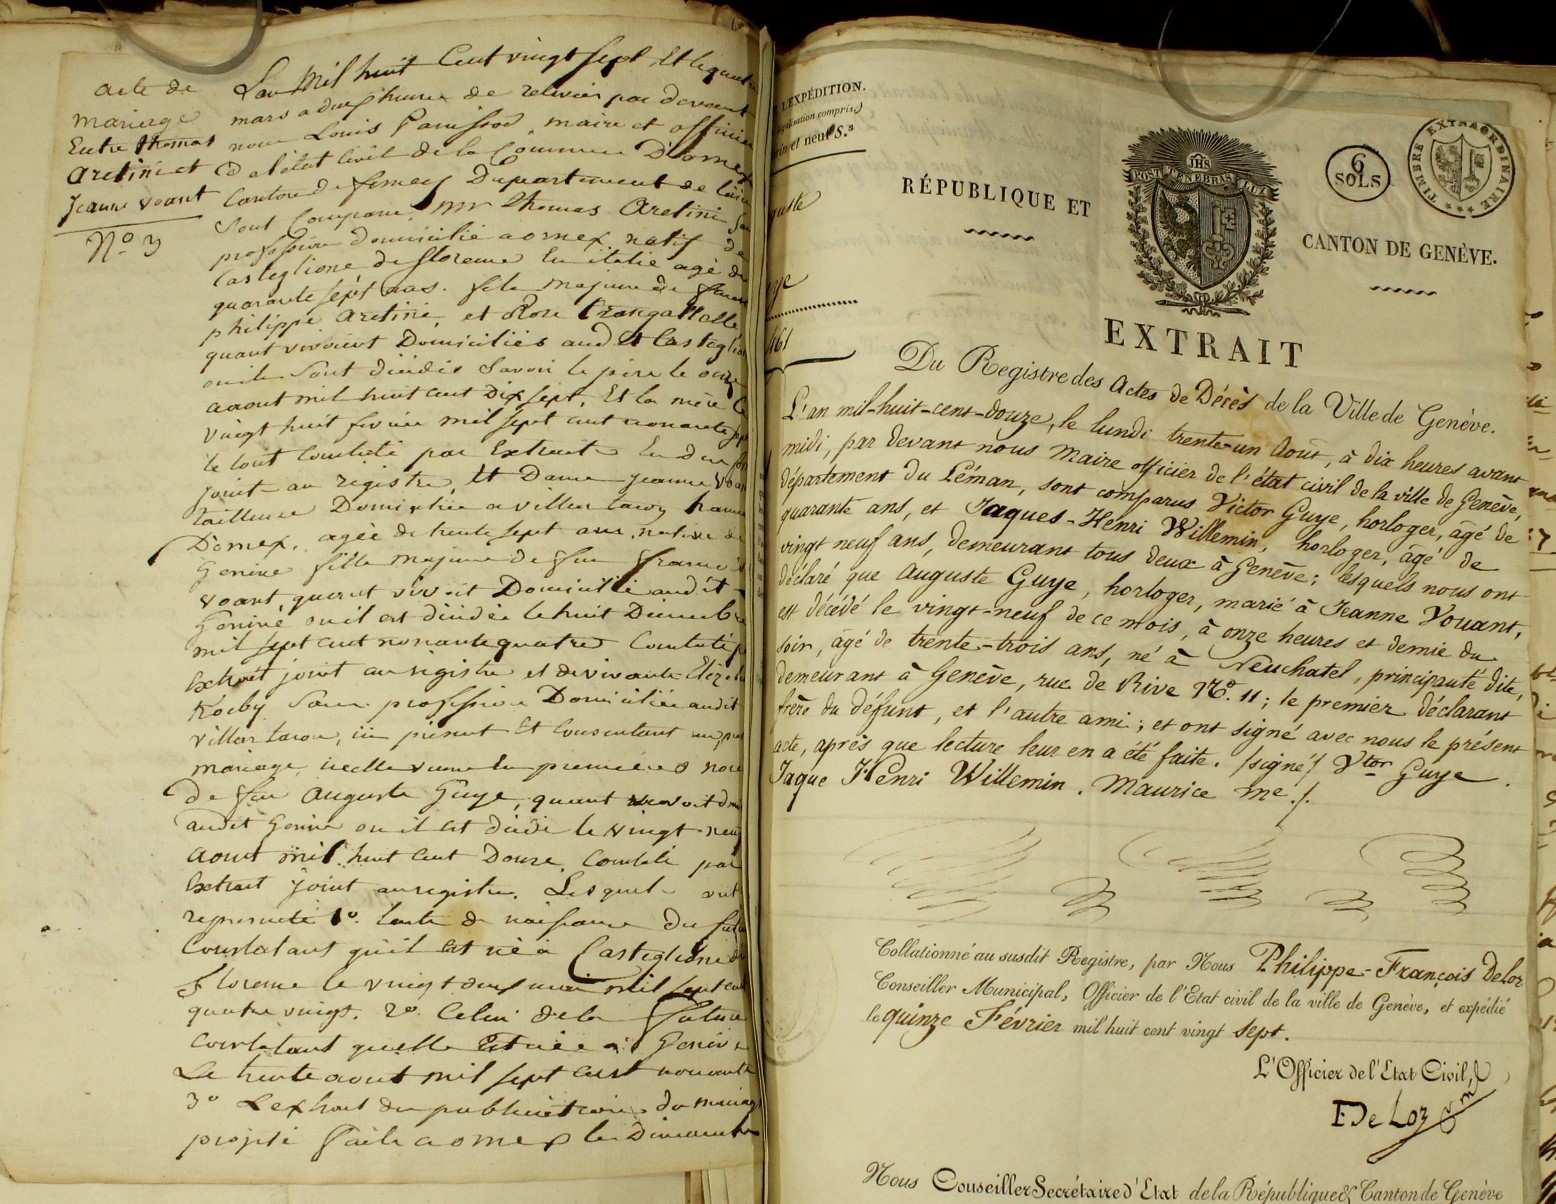 acte de
mariage
Entre thomas
aretini et
jeanne voant
N.o 3
L'an Mil huit Cent vingt sept, Et le quatre
mars a deux heures de relevée par devant
nous Louis Panissod, maire et officier
de l'état Civil de la Commune D'ornex
Canton de ferney Departement de l'ain
Sont Comparu, mr thomas aretini San
profession domicilié a ornex natif de
Castiglione de florence En italie agé de
quarante sept ans. fils majeur de feu
philippe aretini, et Rose
quant vivoient Domiciliés audit Castiglion
ou ils Sont décédés Savoir le père le onze
aoout mil huit cent Dix sept, Et la mère le
vingt huit fevrier mil sept cent nonante sept
le tout Constaté par Extraits En due
joint au registre, Et Dame jeanne voant
tailleuse Domiciliée a villar tacon hameau
D'ornex, agée de trente sept ans, native de
Genève fille majeure de feu françois
voant, quant vivoit Domicilié audit
Genève ou il est décédé le huit Décembre
mil sept cent nonante quatre Constaté p
Extrait joint au registre et de vivante
Sans profession Domiciliée audit
villar tacon, ici présent Et Consentant au pré
mariage, icelle veuve En premières noces
De feu auguste Guye, quant vivoit dom
audit Genève ou il est décédé le vingt-neuf
aoout mil huit cent Douze, Constaté par
Extrait joint au registre. Lesquels ont
représenté 1o. l'acte de naissance Du futur
Constatant qu'il est né à Castiglione de
florence le vingt deux mars mil sept cent
quatre vingt. 2o. Celui de la future
Constatant qu'elle Est née à Genève
Le trente aoout mil sept cent nonante
3o L'extrait des publications du mariage
projeté faites a ornex les Dimanches
L'EXPÉDITION.
(légalisation comprise)
et neuf S.s
guste
ye
161
RÉPUBLIQUE ET
IHS
POST TENEBRAS LUX
6
SOLS
TIMBRE EXTRAORDINAIRE
CANTON DE GENÈVE.
EXTRAIT
Du Registre des Actes de Décès de la Ville de Genève.
L'an mil-huit-cent-douze, le lundi trente-un Août, à dix heures avant
midi, par devant nous Maire officier de l'état civil de la ville de Genève,
département du Léman, sont comparus Victor Guye, horloger, âgé de
quarante ans, et Jaques-Henri Willemin, horloger, âgé de
vingt neuf ans, demeurant tous deux à Genève; lesquels nous ont
déclaré que Auguste Guye, horloger, marié à Jeanne Vouant,
est décédé le vingt-neuf de ce mois, à onze heures et demie du
soir, âgé de trente-trois ans, né à Neuchatel, principauté dite,
demeurant à Genève, rue de Rive N.o 11; le premier déclarant
frère du défunt, et l'autre ami; et ont signé avec nous le présent
acte, après que lecture leur en a été faite. /signé/ Vtor Guye.
Jaque Henri Willemin. Maurice me./.
Collationné au susdit Registre, par Nous Philippe-François DeLoz
Conseiller Municipal, Officier de l'Etat civil de la ville de Genève, et expédié
le quinze Février mil huit cent vingt sept.
L'Officier de l'Etat Civil,
F De Loz
Nous Conseiller Secrétaire d'Etat de la République & Canton de Genève